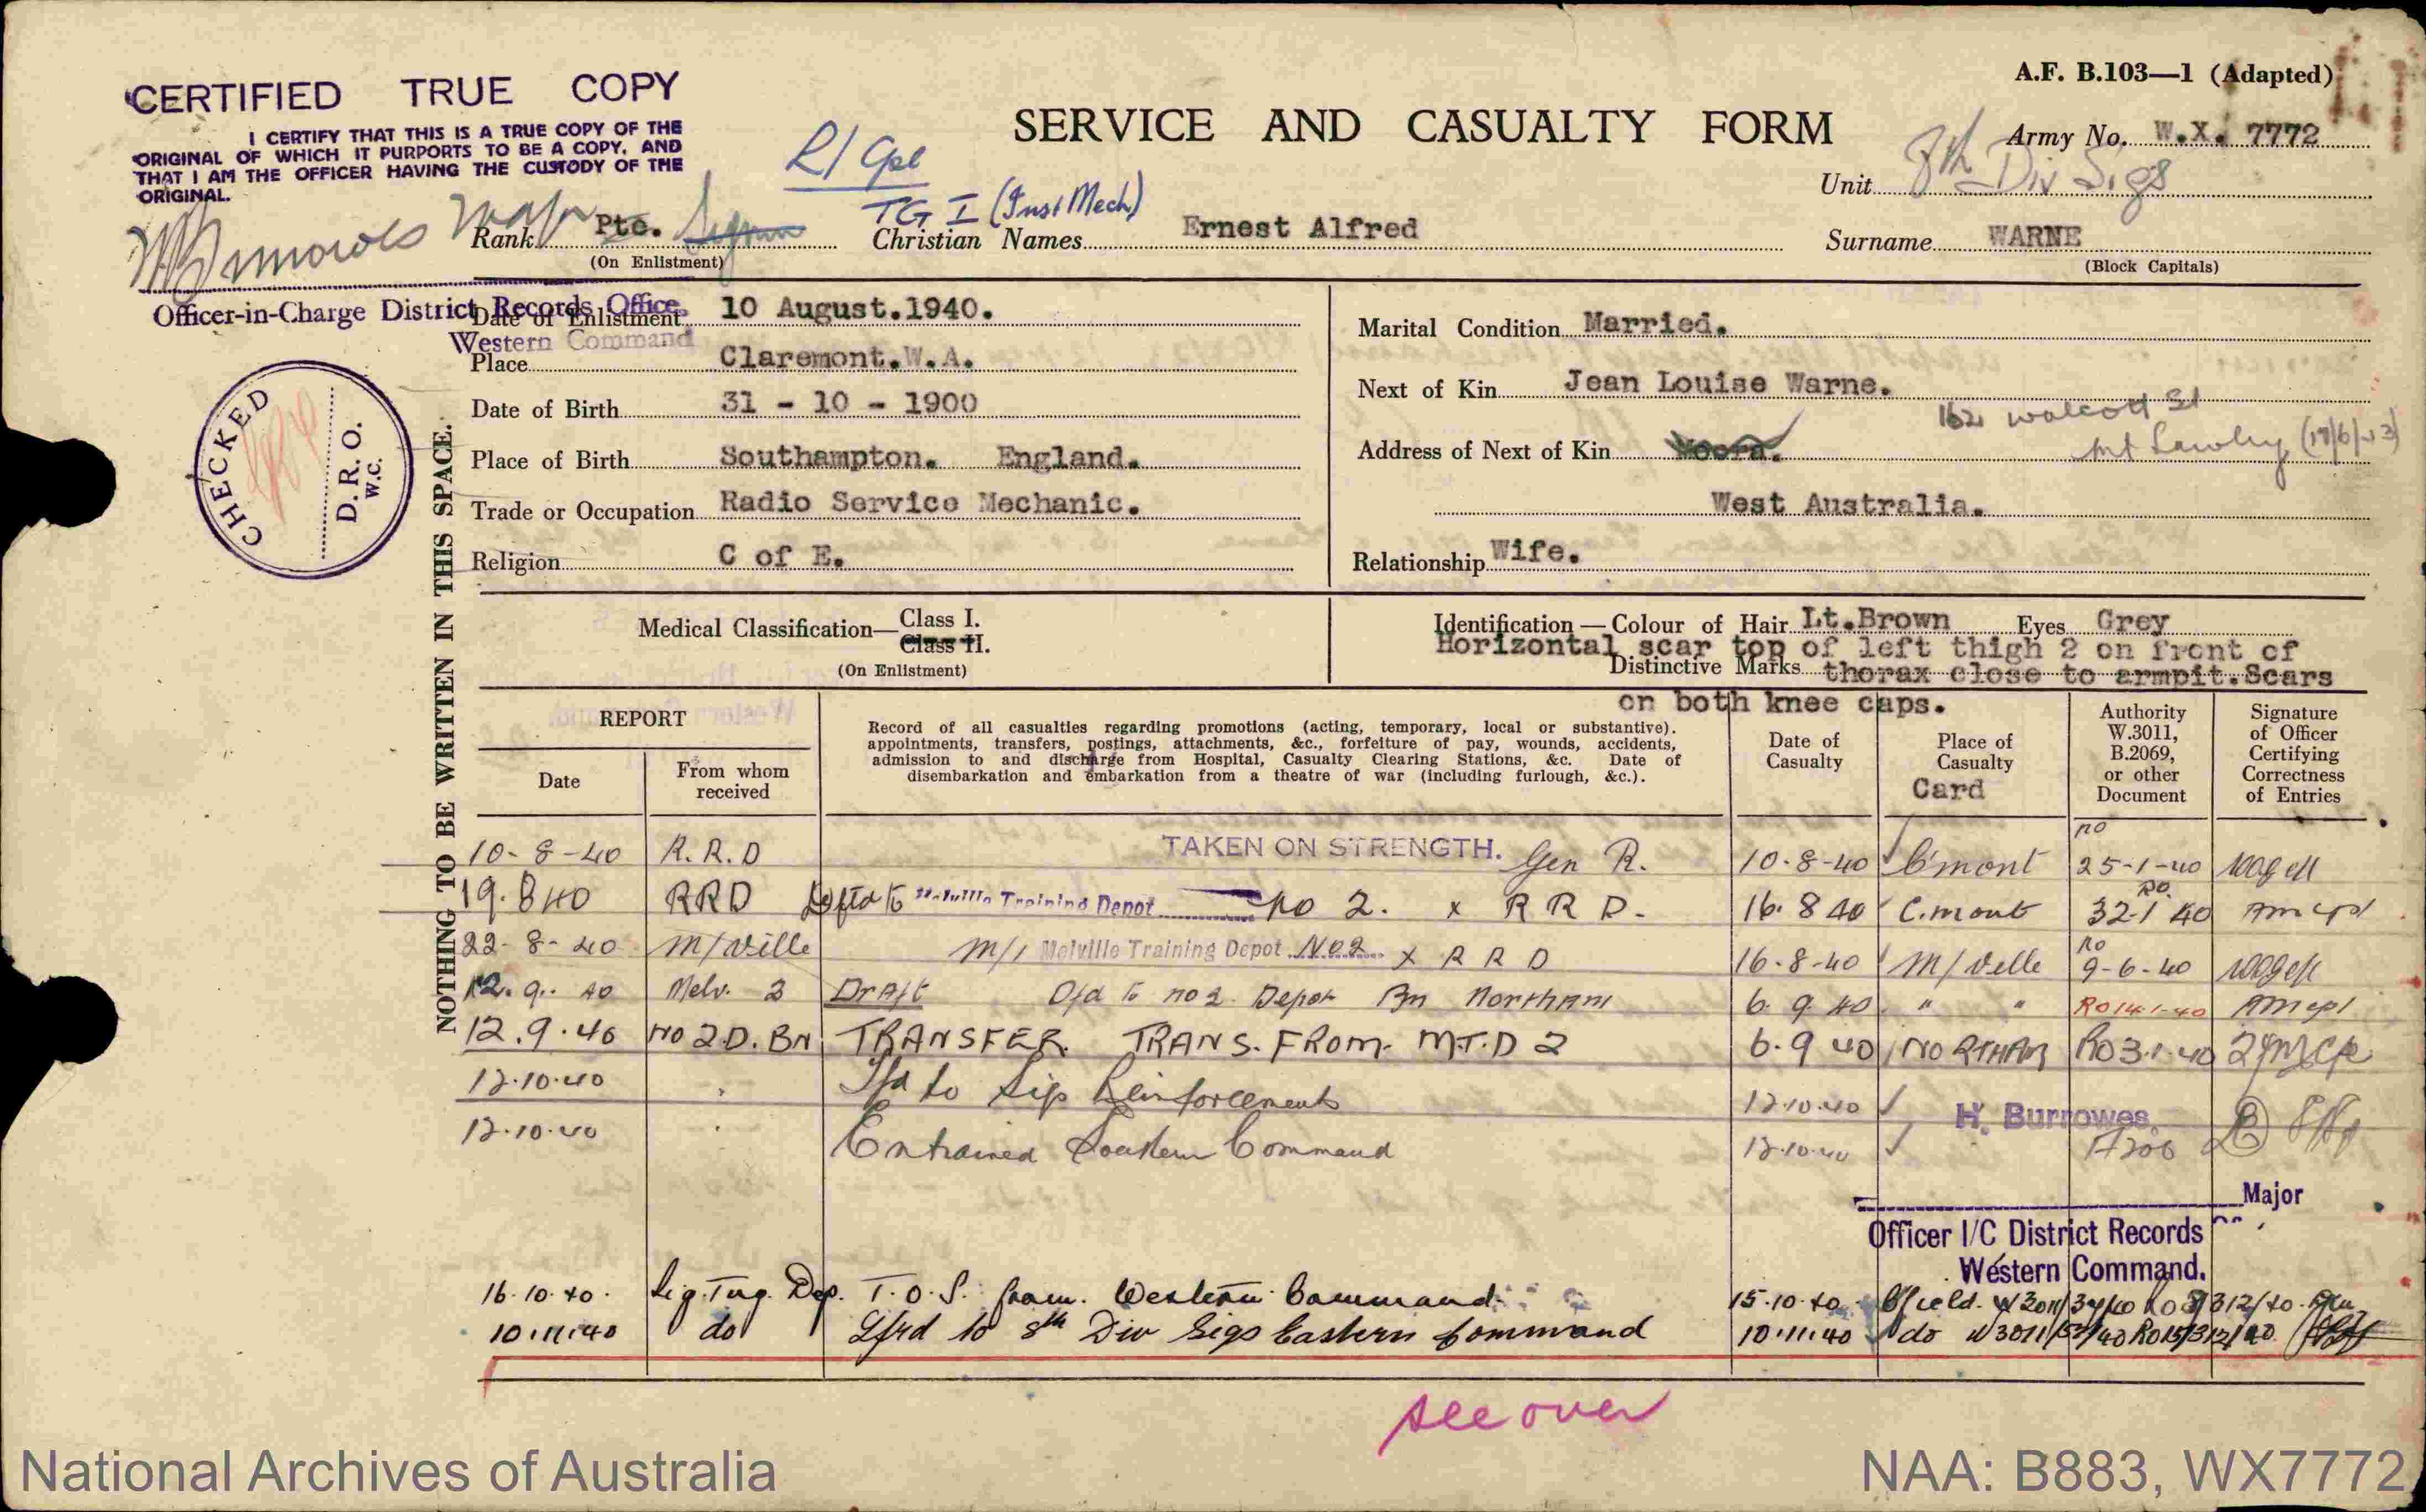 CERTIFIED TRUE COPY
I CERTIFY THAT THIS IS A TRUE COPY OF THE
ORIGINAL OF WHICH IT PURPORTS TO BE A COPY, AND
THAT I AM THE OFFICER HAVING THE CUSTODY OF THE
ORIGINAL.
Major
Officer-in-Charge District Records Office
Western Command
A.F. B.103—1 (Adapted)
SERVICE AND CASUALTY FORM
Army No. W.X. 7772
R/Cpl
TG I (Inst Mech)
Unit 8th Div Sigs
Rank Pte. Sigmn
(On Enlistment)
Christian Names Ernest Alfred
Surname WARNE
(Block Capitals)
Date of Enlistment 10 August.1940.
Place Claremont.W.A.
Date of Birth 31 - 10 - 1900
Place of Birth Southampton. England.
Trade or Occupation Radio Service Mechanic.
Religion C of E.
Marital Condition Married.
Next of Kin Jean Louise Warne.
Address of Next of Kin Moora. 162 Walcott St
Mt Lawley (17/6/43)
West Australia.
Relationship Wife.
CHECKED
D.R.O.
W.C.
NOTHING TO BE WRITTEN IN THIS SPACE.
Medical Classification— Class I.
Class II.
(On Enlistment)
Identification — Colour of Hair Lt.Brown Eyes Grey
Horizontal scar top of left thigh 2 on front of
Distinctive Marks thorax close to armpit.Scars
on both knee caps.
REPORT
Date
From whom received
Record of all casualties regarding promotions (acting, temporary, local or substantive).
appointments, transfers, postings, attachments, &c., forfeiture of pay, wounds, accidents,
admission to and discharge from Hospital, Casualty Clearing Stations, &c. Date of
disembarkation and embarkation from a theatre of war (including furlough, &c.).
Date of Casualty
Place of Casualty
Card
Authority W.3011, B.2069, or other Document
Signature of Officer Certifying Correctness of Entries
10-8-40 R.R.D TAKEN ON STRENGTH. Gen R. 10-8-40 C'mont RO 25-1-40
19.8 40 RRD Dftd to Melville Training Depot No 2. x R R D. 16.8 40 C.mont RO 32-1 40
22-8-40 M/Ville M/I Melville Training Depot No 2 x R R D 16-8-40 M/Ville RO 9-6-40
12.9.40 Melv. 2 Draft Dfd to no 2 Depot Bn Northam 6 9 40 " " RO 14-1-40
12.9.40 NO 2 D. BN TRANSFER TRANS. FROM M.T.D 2 6.9 40 NORTHAM RO 3.1.40
12.10.40 " Tfd to Sigs Reinforcements 12.10.40
12.10.40 " Entrained Eastern Command 12.10.40
H. Burrowes.
Major
Officer I/C District Records
Western Command.
16.10.40. Sig. Tng. Dep. T.O.S. from Western Command. 15.10.40
10.11.40 do Tfrd to 8th Div Sigs Eastern Command 10.11.40 do
see over
National Archives of Australia
NAA: B883, WX7772